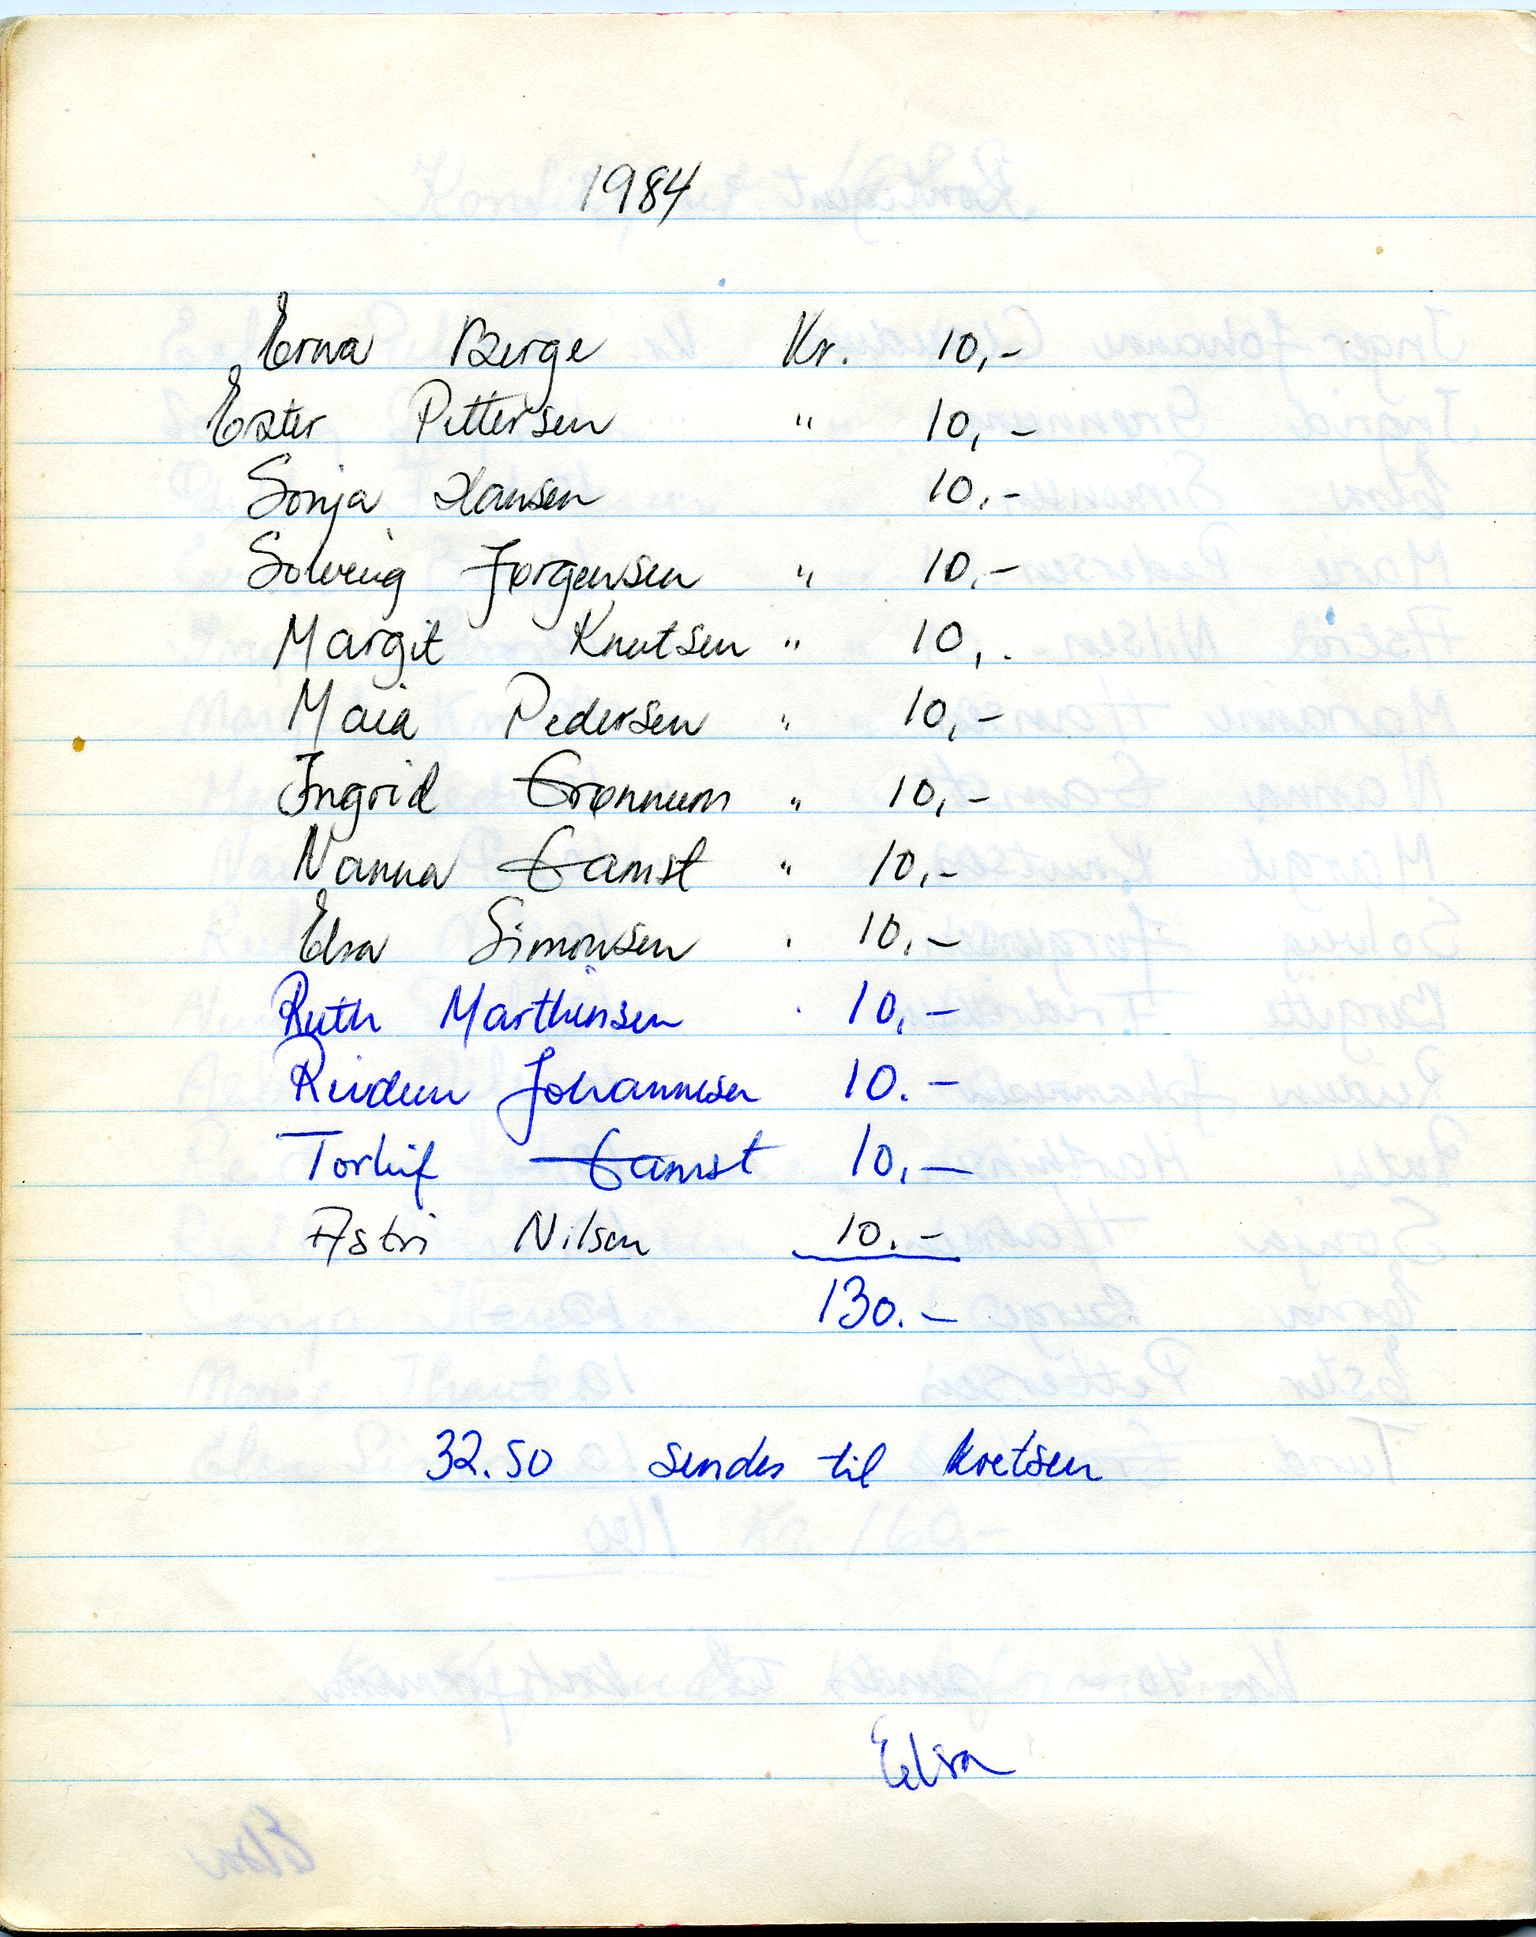 1984
Erna Berge Kr. 10,-
Ester Pettersen " 10,-
Sonja Hansen 10,-
Solveig Jørgensen " 10,-
Margit Knutsen " 10,.
Maia Pedersen " 10,-
Ingrid Grønnum " 10,-
Nanna Gamst " 10,-
Elsa Simonsen . 10,-
Ruth Marthinsen . 10,-
Reidun Johannesen 10.-
Torleif Gamst 10,-
Astri Nilsen 10.-
130.-
32.50 sendes til kretsen
Elsa